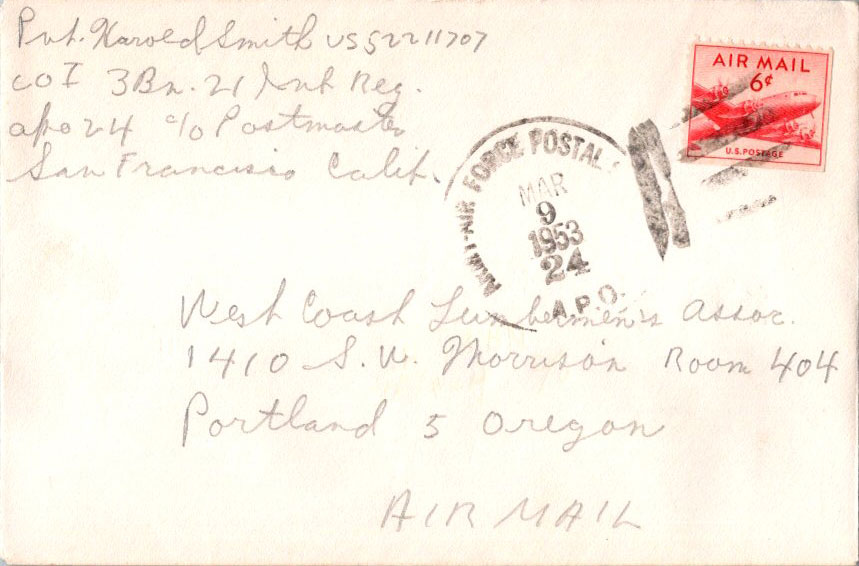 Pvt. Harold Smith US52211707
CO I 3Bn. 21 Inf Reg.
apo 24 c/o Postmaster
San Francisco Calif.
AIR MAIL
6¢
U.S. POSTAGE
ARMY-AIR FORCE POSTAL
MAR
9
1953
24
A.P.O.
West Coast Lumbermen's Assoc.
1410 S.W. Morrison Room 404
Portland 5 Oregon
AIR MAIL